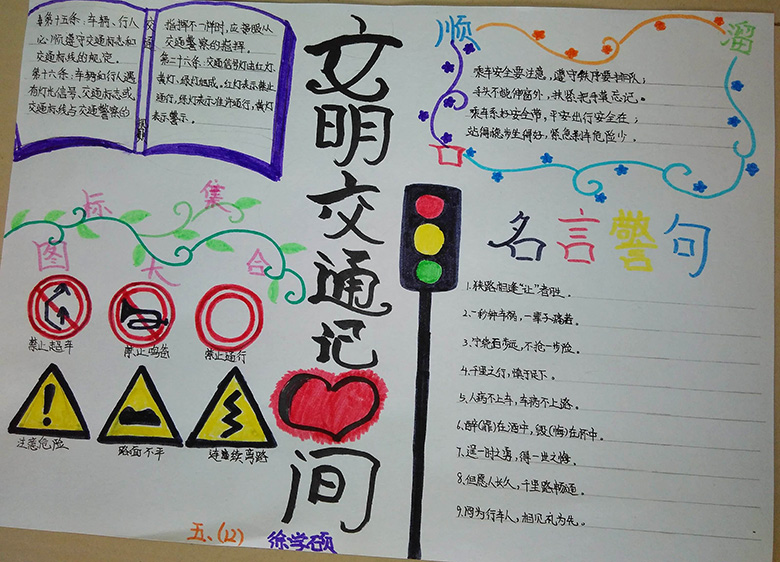 第十五条：车辆、行人
必须遵守交通标志和
交通标线的规定。
第十六条：车辆和行人遇
有灯光信号、交通标志或
交通标线与交通警察的
交通
指挥不一样时，应当服从
交通警察的指挥。
第二十六条：交通信号灯由红灯、
黄灯、绿灯组成。红灯表示禁止
通行，绿灯表示准许通行，黄灯
表示警示。
文明交通记
间
顺
溜
口
乘车安全要注意，遵守秩序要排队；
手头不能伸窗外，扶紧把手莫忘记。
乘车系好安全带，平安出行安全在；
标集
图大合
禁止超车
禁止鸣笛
禁止通行
注意危险
路面不平
名言警句
1.狭路相逢“让”者胜。
2.一秒钟车祸，一辈子痛苦。
3.宁绕百步远，不抢一步险。
4.千里之行，慎于足下。
5.人病不上车，车病不上路。
6.醉(罪)在酒中，毁(悔)在杯中。
7.逞一时之勇，得一世之悔。
8.但愿人长久，千里路畅通。
9.同为行车人，相见礼为先。
五、(12)
徐学硕